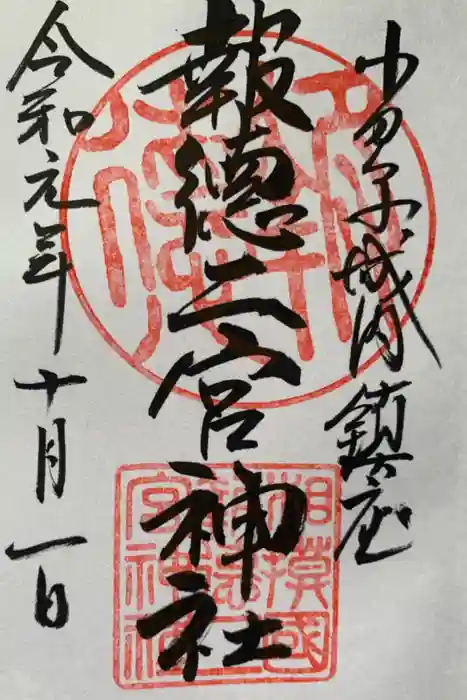 小田原城内鎮座
報徳二宮神社
令和元年十月一日
相摸國
報徳二
宮神社